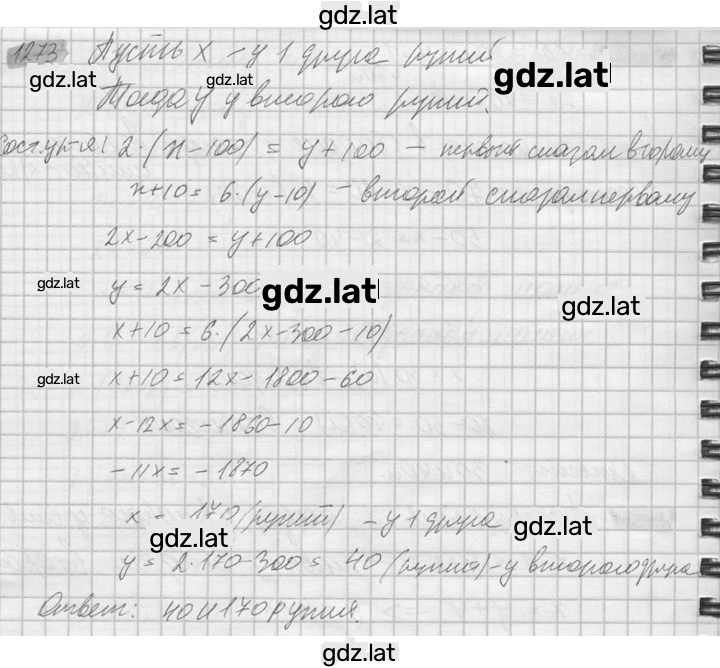 gdz.lat
1273 Пусть x – у 1 друга рупий
gdz.lat gdz.lat
Тогда y у второго рупий.
Сост. ур-я: 2·(x–100) = y+100 – первый сказал второму
x+10 = 6·(y–10) – второй сказал первому
2x–200 = y+100
gdz.lat y = 2x – 300 gdz.lat gdz.lat
x+10 = 6·(2x–300–10)
gdz.lat x+10 = 12x – 1800 – 60
x–12x = –1860–10
–11x = –1870
x = 170 (рупий) – у 1 друга
gdz.lat gdz.lat
y = 2·170–300 = 40 (рупия) – у второго друга
Ответ: 40 и 170 рупия.
gdz.lat